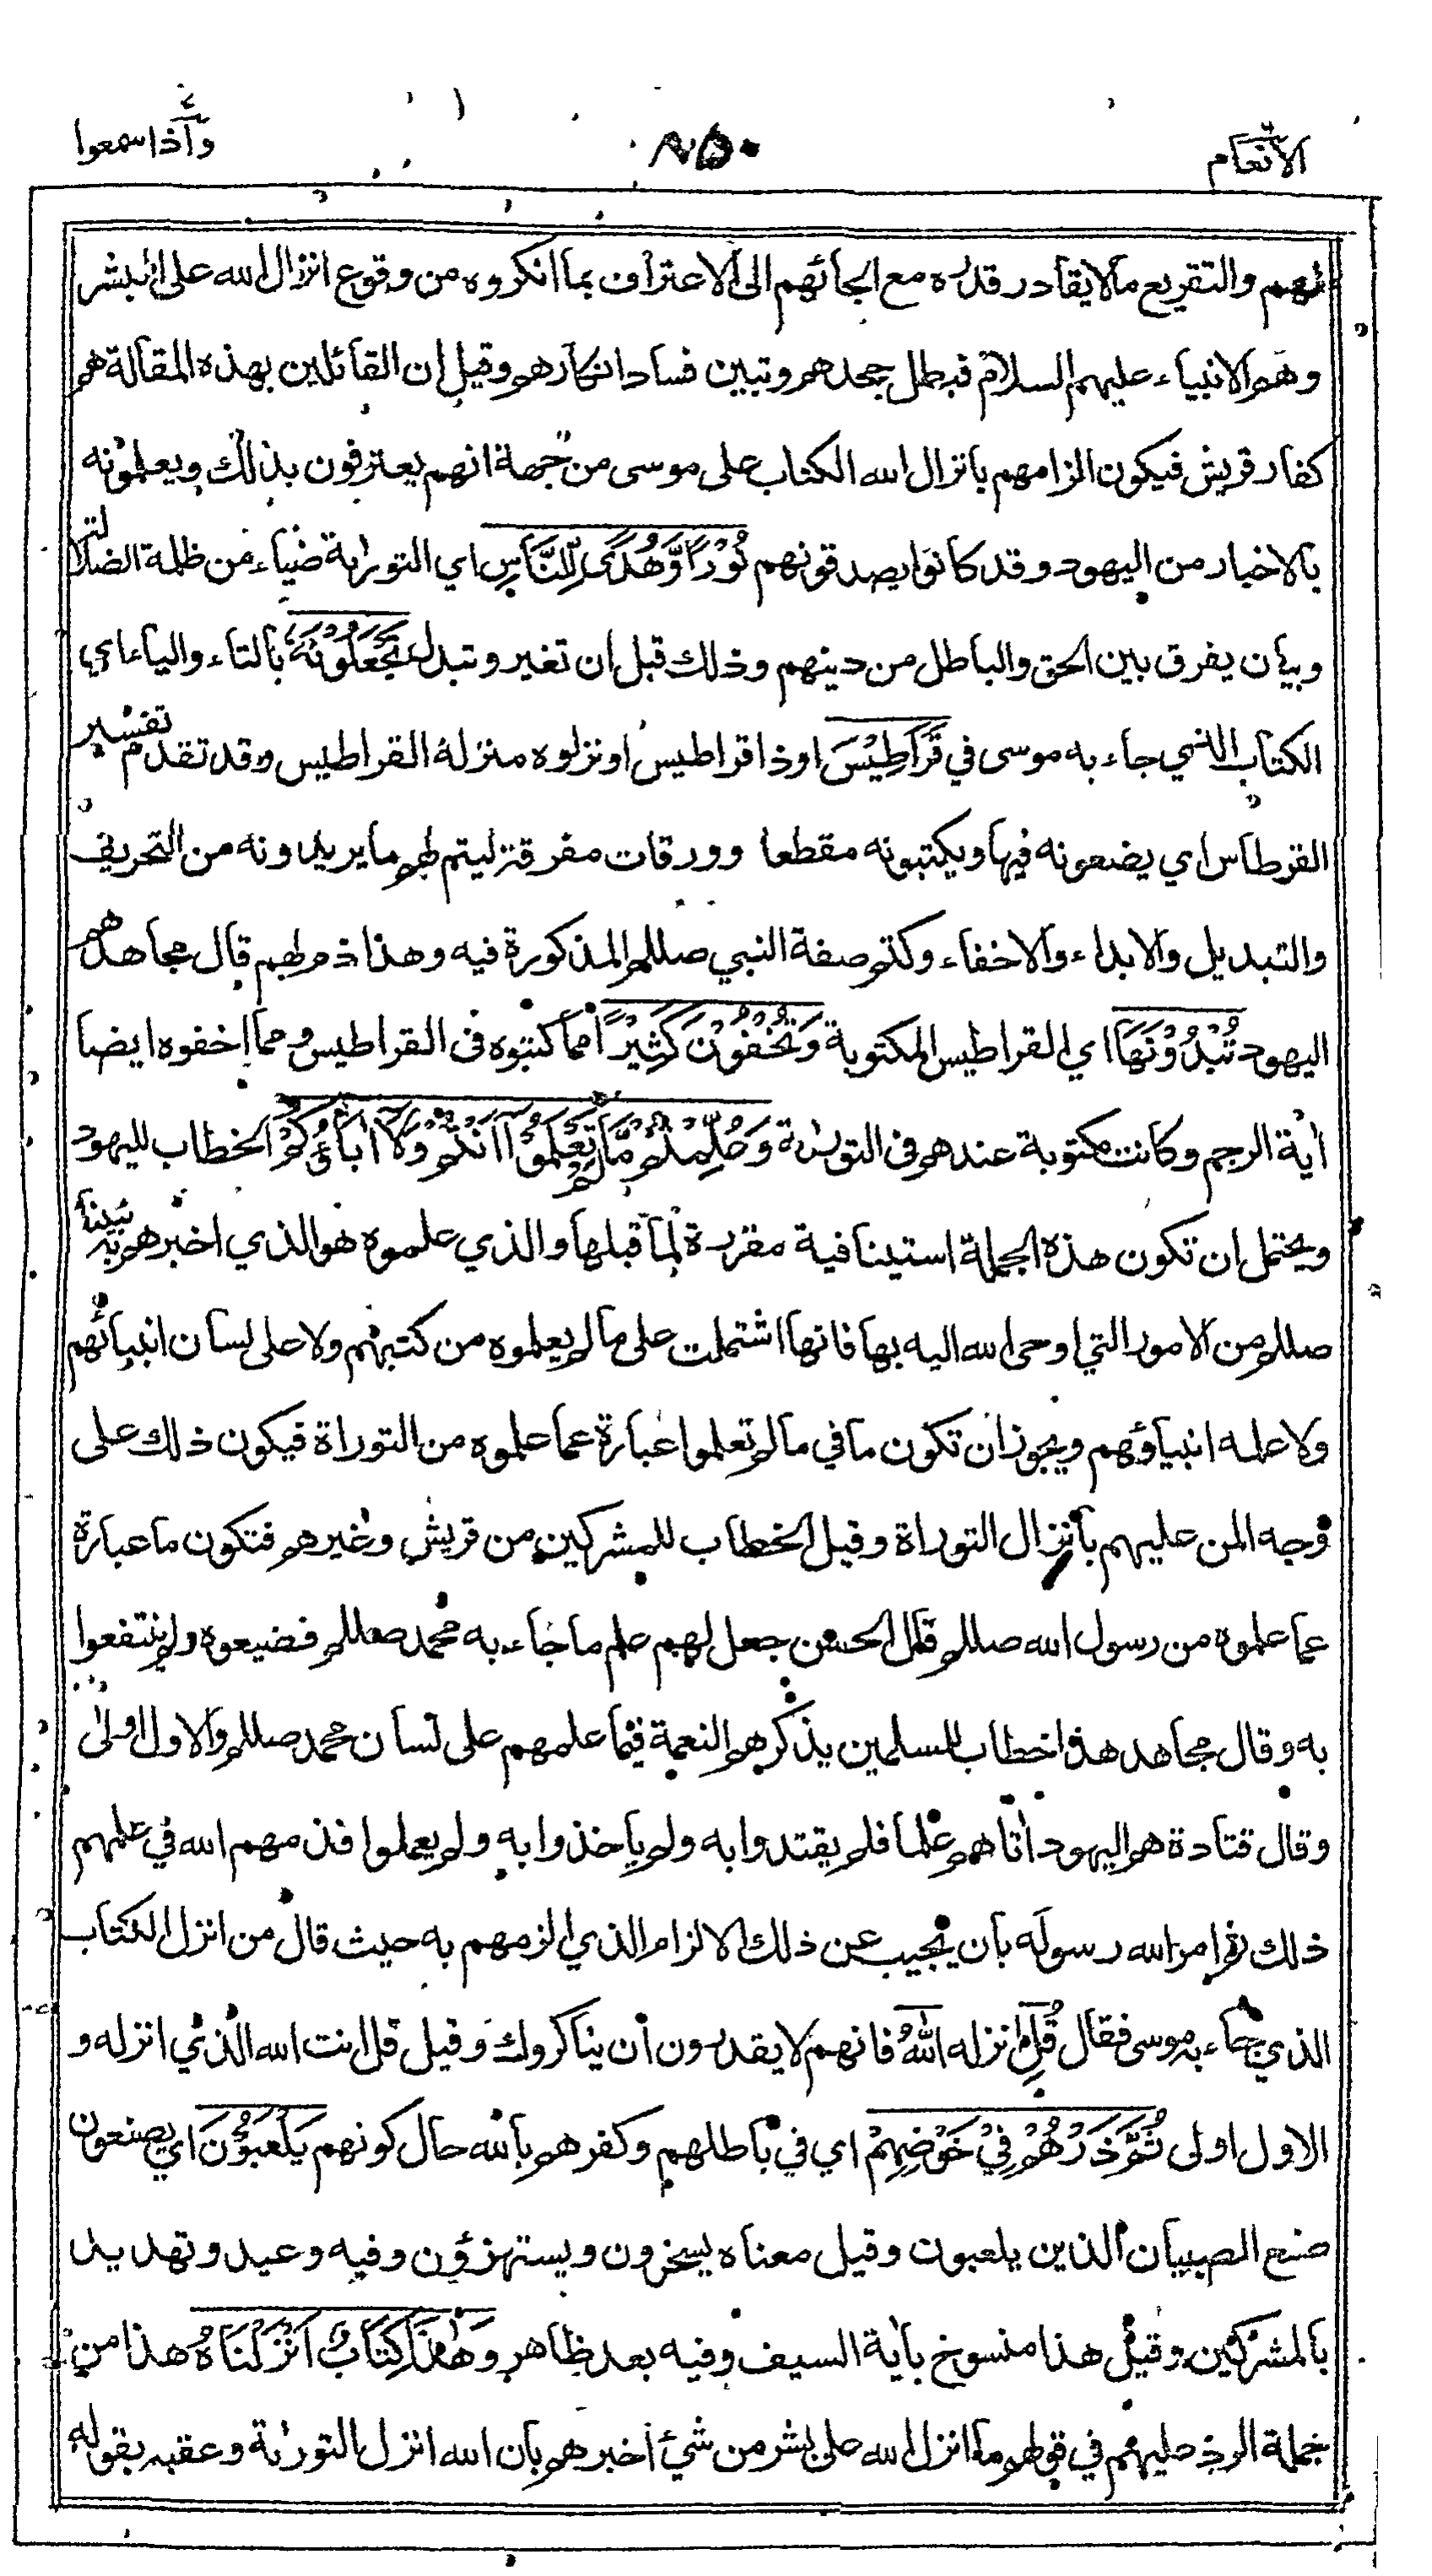 الانعام
٨٥٠
واذا سمعوا
لهم والتقريع ما لا يقادر قدره مع الجائهم الى الاعتراف بما انكروه من وقوع انزال الله على البشر
وهم الانبياء عليهم السلام فبطل جحدهم وتبين فساد انكارهم وقيل ان القائلين بهذه المقالة هم
كفار قريش فيكون الزامهم بانزال الله الكتاب على موسى من جهة انهم يعترفون بذلك ويعلمونه
بالاخبار من اليهود وقد كانوا يصدقونهم نُوْرًا وَّهُدًى لِّلنَّاسِ اي التورىة ضياء من ظلمة الضلالة
وبيان يفرق بين الحق والباطل من دينهم وذلك قبل ان تغير وتبدل تَجْعَلُوْنَهُ بالتاء والياء اي
الكتاب الذي جاء به موسى في قَرَاطِيْسَ او ذا قراطيس او نزلوه منزلة القراطيس وقد تقدم تفسير
القرطاس اي يضعونه فيها ويكتبونه مقطعا وورقات مفرقة ليتم لهم ما يريدونه من التحريف
والتبديل والابداء والاخفاء وكتم صفة النبي صللم المذكورة فيه وهذا ذم لهم قال مجاهد هم
اليهود تُبْدُوْنَهَا اي القراطيس المكتوبة وَتُخْفُوْنَ كَثِيْرًا مما كتبوه في القراطيس ومما اخفوه ايضا
اٰية الرجم وكانت مكتوبة عندهم في التورىة وَعُلِّمْتُمْ مَّا لَمْ تَعْلَمُوْا اَنْتُمْ وَلَا اٰبَاؤُكُمْ الخطاب لليهود
ويحتمل ان تكون هذه الجملة استينافية مقررة لما قبلها والذي علموه هو الذي اخبرهم به نبينا
صللم من الامور التي اوحى الله اليه بها فانها اشتملت على ما لم يعلموه من كتبهم ولا على لسان انبيائهم
ولا علمه انبياؤهم ويجوز ان تكون ما في ما لم تعلموا عبارة عما علموه من التوراة فيكون ذلك على
وجه المن عليهم بانزال التوراة وقيل الخطاب للمشركين من قريش وغيرهم فتكون ما عبارة
عما علموه من رسول الله صللم قال الحسن جعل لهم علم ما جاء به محمد صللم فضيعوه ولم ينتفعوا
به وقال مجاهد هذا خطاب للمسلمين يذكرهم النعمة فيما علمهم على لسان محمد صللم والاول اولى
وقال قتادة هم اليهود اتاهم علما فلم يقتدوا به ولم ياخذوا به ولم يعملوا فذمهم الله في علمهم
ذلك ثم امر الله رسوله بان يجيب عن ذلك الالزام الذي الزمهم به حيث قال من انزل الكتاب
الذي جاء به موسى فقال قُلِ انزله اللّٰهُ فانهم لا يقدرون ان يناكروك وقيل قل انت الله الذي انزله و
الاول اولى ثُمَّ ذَرْهُمْ فِيْ خَوْضِهِمْ اي في باطلهم وكفرهم بالله حال كونهم يَلْعَبُوْنَ اي يصنعون
صنع الصبيان الذين يلعبون وقيل معناه يسخرون ويستهزؤن وفيه وعيد وتهديد
بالمشركين وقيل هذا منسوخ باٰية السيف وفيه بعد ظاهر وَهٰذَا كِتَابٌ اَنْزَلْنَاهُ هذا من
جملة الرد عليهم في قولهم ما انزل الله على بشر من شيئ اخبرهم بان الله انزل التورىة وعقبه بقوله